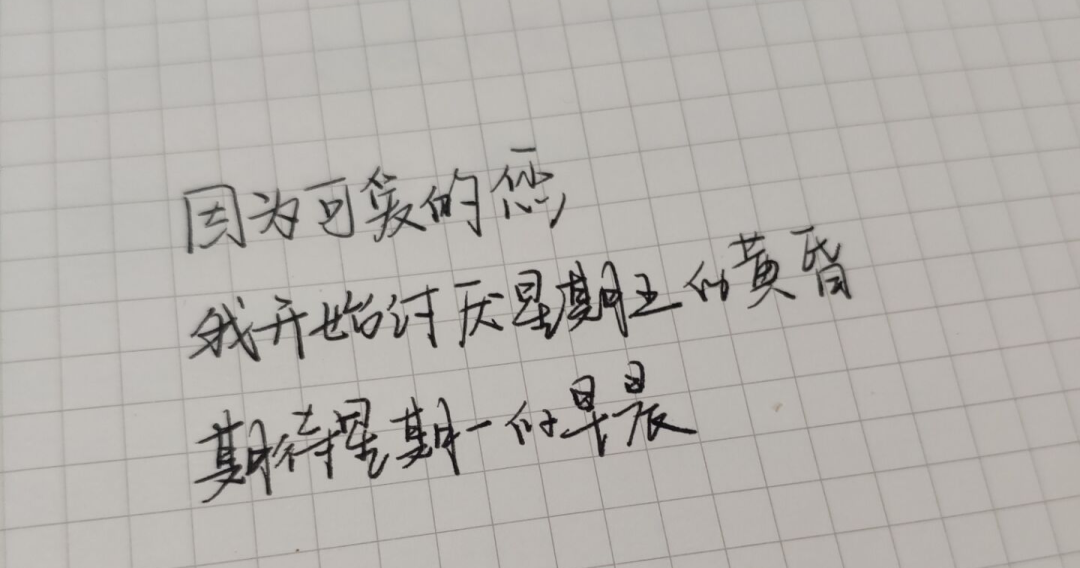 因为可爱的您
我开始讨厌星期五的黄昏
期待星期一的早晨